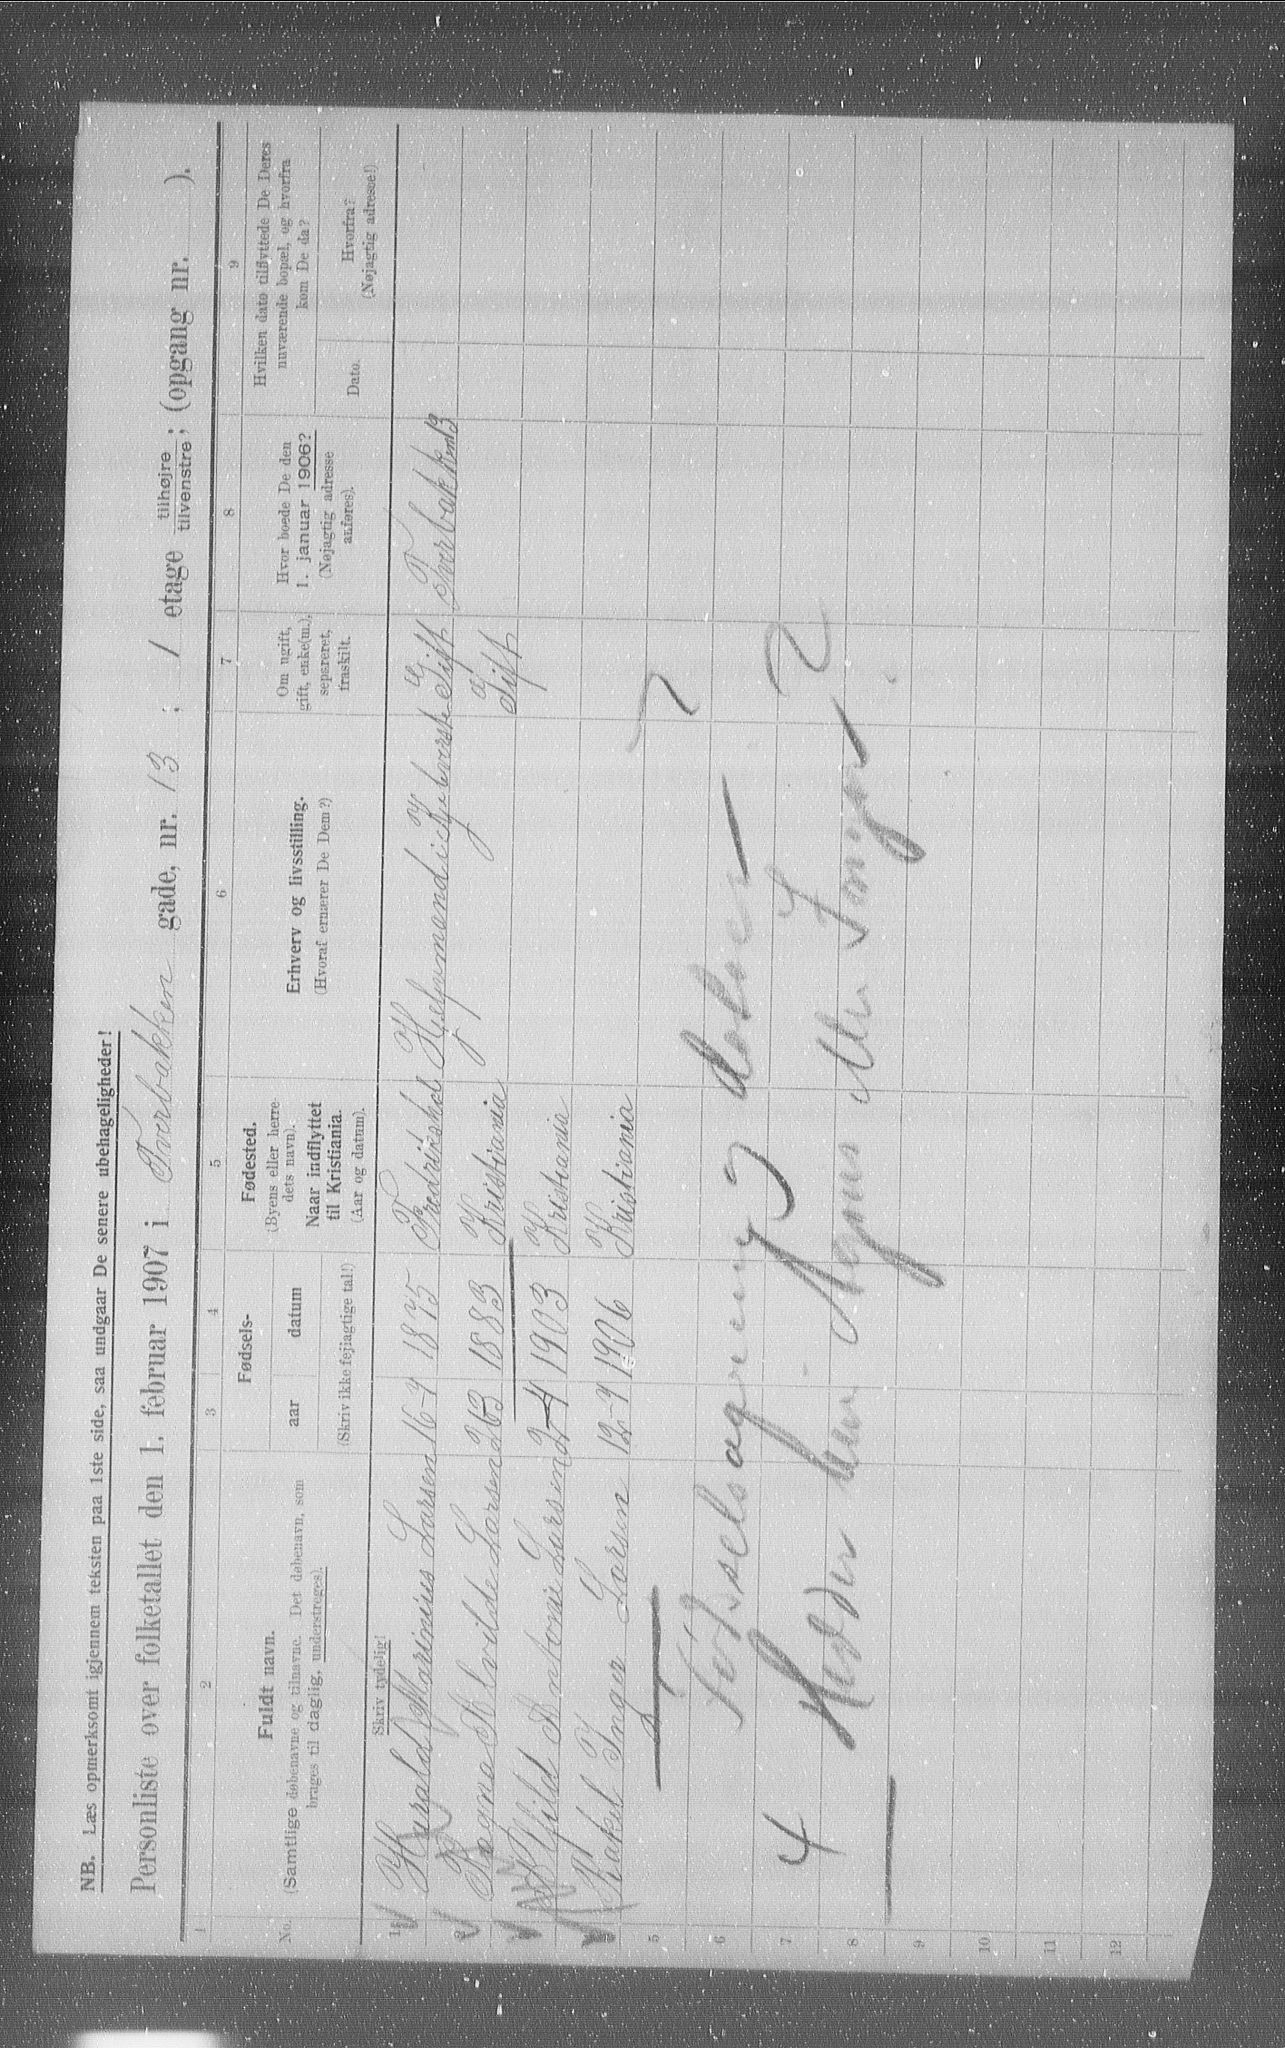 NB. Læs opmerksomt igjennem teksten paa 1ste side, saa undgaar De senere ubehageligheder!
Personliste over folketallet den 1. februar 1907 i Tverbakken gade, nr. 13 ; 1 etage tilhøjre tilvenstre; (opgang nr. ).
1 2 3 4 5 6 7 8 9
No.
Fuldt navn.
(Samtlige døbenavne og tilnavne. Det døbenavn, som
bruges til daglig, understreges).
Skriv tydelig!
Fødsels-
aar datum
(Skriv ikke fejlagtige tal!)
Fødested.
(Byens eller herre-
dets navn).
Naar indflyttet
til Kristiania.
(Aar og datum).
Erhverv og livsstilling.
(Hvoraf ernærer De Dem?)
Om ugift,
gift, enke(m.),
separeret,
fraskilt.
Hvor boede De den
1. januar 1906?
(Nøjagtig adresse
anføres).
Hvilken dato tilflyttede De Deres
nuværende bopæl, og hvorfra
kom De da?
Dato.
Hvorfra?
(Nøjagtig adresse!)
1 Harald Marinius Larsen 16-7 1875 Fredrikshal Gift Tverbakken 13
2 Ragna Alvilde Larsen 1883 Kristiania Gift
Antonie Larsen 1903 Kristiania
Rakel Inger Larsen 12-7 1906 Kristiania
5
6 Fødselsag
7 4
8
9
10
11
12